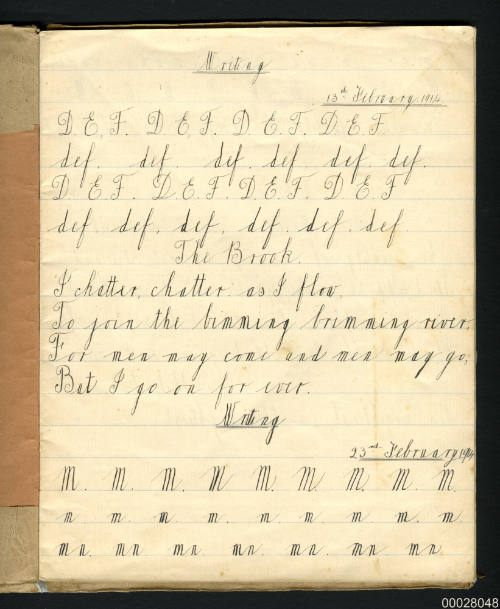 Writing
13th February 1914
D. E. F. D. E. F. D. E. F. D. E. F.
def. def. def. def. def. def.
D. E. F. D. E. F. D. E. F. D. E. F
def. def. def. def. def. def.
The Brook.
I chatter, chatter as I flow,
To join the bimming brimming river,
For men may come and men may go,
But I go on for ever.
Writing
23nd February 1914
M. M. M. M M. M. M. M. M.
m m. m. m. m. m. m. m. m.
mn. mn mn. mn. mn. mn. mn
00028048